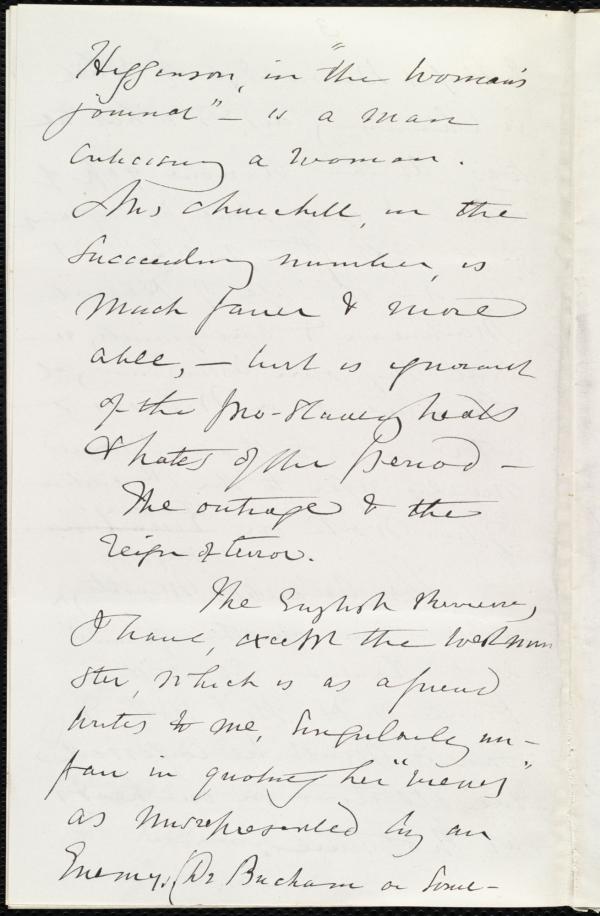 Higginson, in "the Woman's
journal" - is a man
criticising a woman.
Mrs Churchill, in the
succeeding number, is
much fairer & more
able, - but is ignorant
of the pro-slavery heats
& hates of the period -
The outrage & the
reign of terror.
The English Reviews,
I have, except the Westmin
ster, which is as a friend
writes to me, singularly un-
fair in quoting her "views"
as misrepresented by an
Enemy, (Dr Bucham or some-